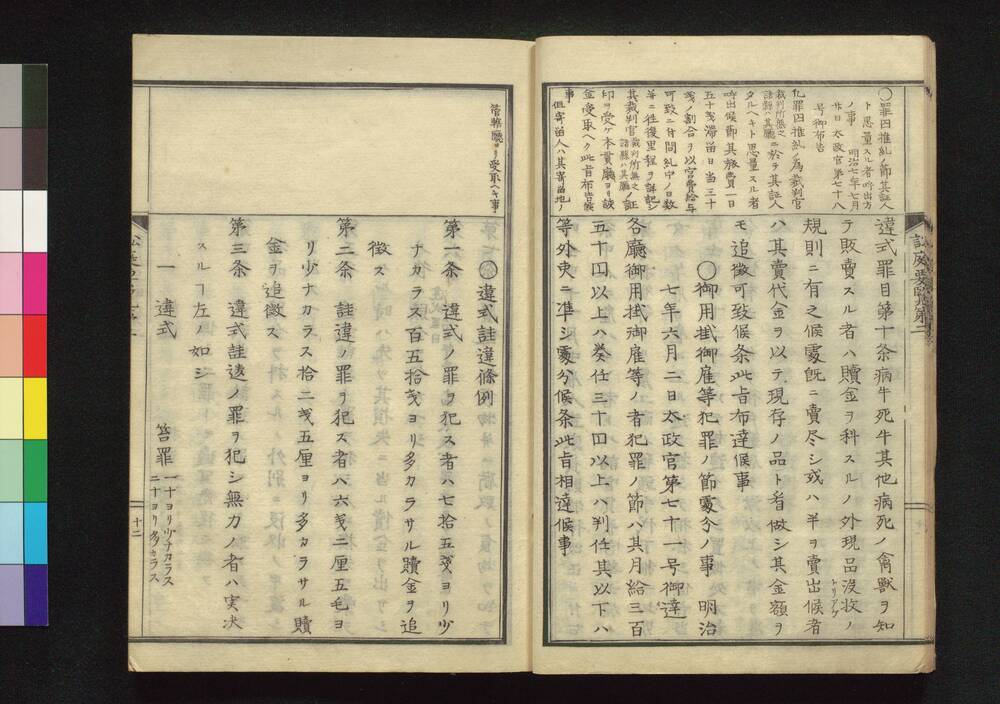 〇罪囚推糺ノ節其証人
ト思量スル者呼出方
ノ事 明治七年七月
廿日太政官第七十八
号御布告
化罪囚推糺ノ為裁判官
裁判所無之諸縣ハ其廳ニ於ヲ其証人
タルヘキト思量スル者
呼出候節其旅費一日
五十戔滞留日当三十
戔ノ割合ヲ以官費給与
可致ニ付間糺中ノ日数
等ニ往復里程ヲ詳記シ
其裁判官裁判所無之諸縣ハ其廳ノ証
印ヲ受ケ本貫廳ヨリ該
金受取ヘク此旨布告候
事
但寄留人ハ其寄留地ノ
違式罪目第十条病牛死牛其他病死ノ禽獣ヲ知
テ販賣スル者ハ贖金ヲ科スルノ外現品没收ノ
トリアゲ
規則ニ有之候處既ニ賣尽シ或ハ半ヲ賣出候者
ハ其賣代金ヲ以テ現存ノ品ト看做シ其金額ヲ
モ追徴可致候条此旨布達候事
〇御用掛御雇等犯罪ノ節處分ノ事 明治
七年六月二日太政官第七十一号御達
各廳御用掛御雇等ノ者犯罪ノ節ハ其月給三百
五十円以上ハ奏任三十円以上ハ判任其以下ハ
等外吏ニ準シ處分候条此旨相達候事
訟庭要覧第二
管轄廳ヨリ受取ヘキ事
〇違式詿違條例
第一条 違式ノ罪ヲ犯ス者ハ七拾五戔ヨリ少
ナカラス百五拾戔ヨリ多カラサル贖金ヲ追
徴ス
第二条 詿違ノ罪ヲ犯ス者ハ六戔二厘五毛ヨ
リ少ナカラス拾二戔五厘ヨリ多カラサル贖
金ヲ追徴ス
第三条 違式詿違ノ罪ヲ犯シ無力ノ者ハ実決
スルヿ左ノ如シ
一 違式 笞罪 一十ヨリ少ナカラス
二十ヨリ多カラス
十二